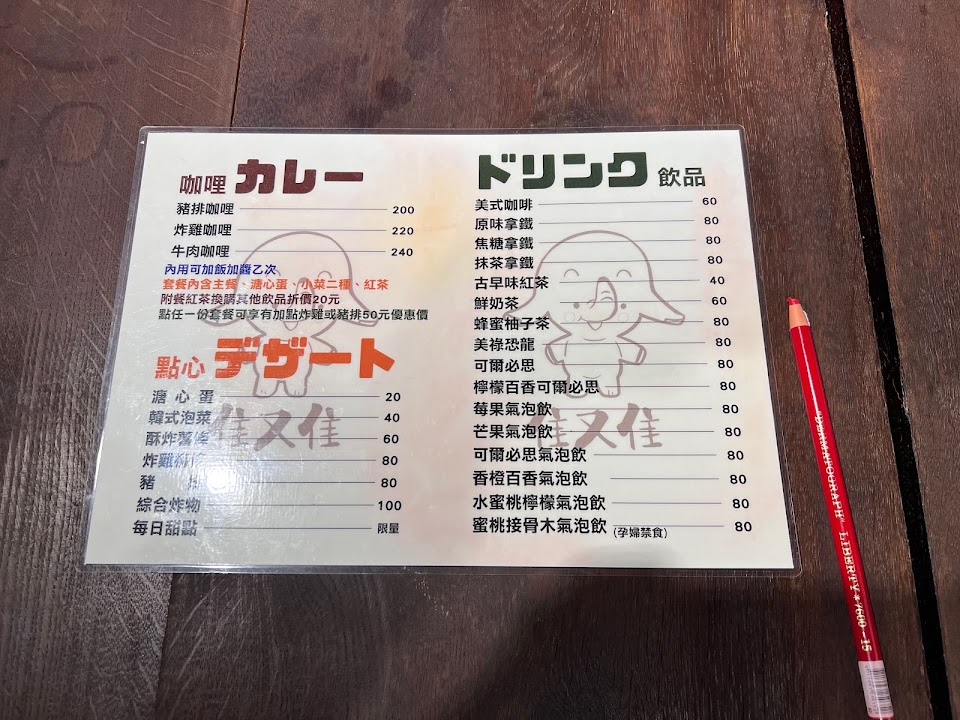 咖哩 カレー
豬排咖哩 200
炸雞咖哩 220
牛肉咖哩 240
內用可加飯加醬乙次
套餐內含主餐、溏心蛋、小菜二種、紅茶
附餐紅茶換購其他飲品折價20元
點任一份套餐可享有加點炸雞或豬排50元優惠價
點心 デザート
溏心蛋 20
韓式泡菜 40
酥炸薯條 60
炸雞 80
豬 80
綜合炸物 100
每日甜點 限量
ドリンク 飲品
美式咖啡 60
原味拿鐵 80
焦糖拿鐵 80
抹茶拿鐵 80
古早味紅茶 40
鮮奶茶 60
蜂蜜柚子茶 80
美祿恐龍 80
可爾必思 80
檸檬百香可爾必思 80
莓果氣泡飲 80
芒果氣泡飲 80
可爾必思氣泡飲 80
香橙百香氣泡飲 80
水蜜桃檸檬氣泡飲 80
蜜桃接骨木氣泡飲 (孕婦禁食) 80
隹又隹
"DERMATOGRAPH" LIBERTY ★7600-15